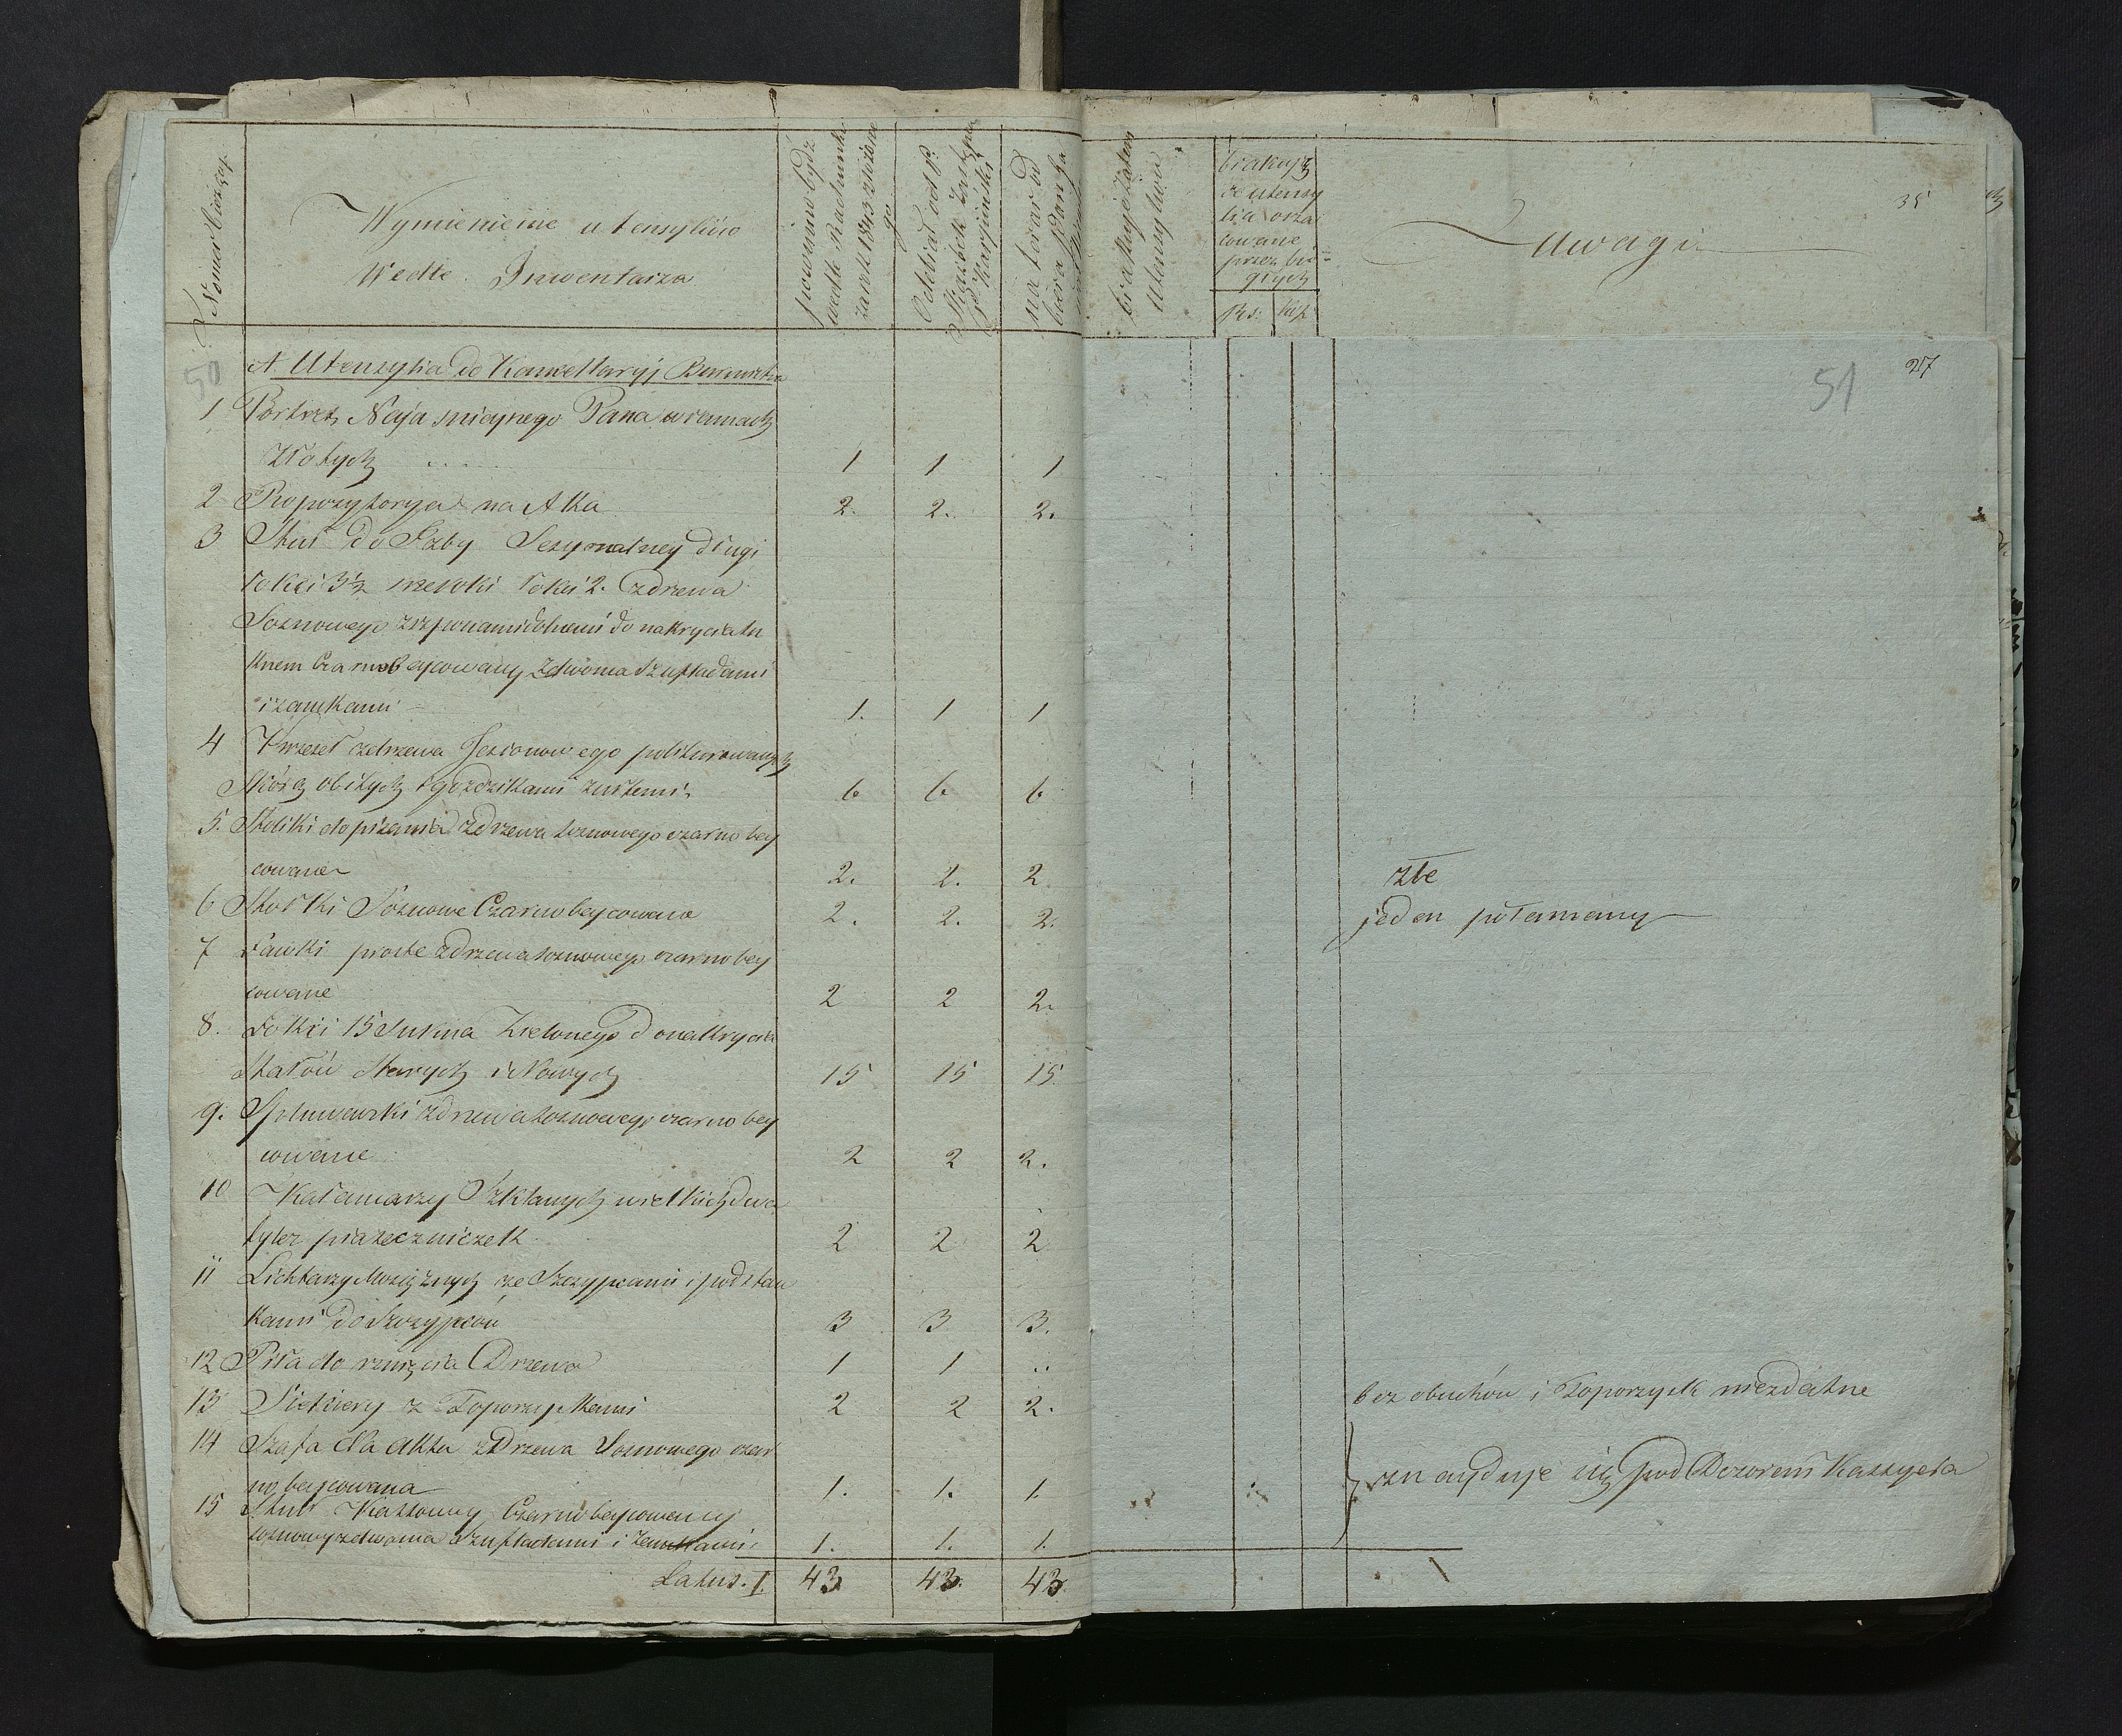 Numer bieżący
Wymienienie utensyliów
Wedle Inwentarza
powinno bydź
wedle Rachunku
za rok 1843 złożone
go
Odebrał od P.
na teraz od
brakuje zatem
utensyliów
brakują
ce utensy
lia osza
cowane
przez bie=
głych
Rs: Kop
Uwagi
35
50
51
27
A. Utensylia do Kancellaryi Burmistrza
1 Portret Najaśnieynego Pana w ramach
złotych 1 1 1
2 Repozytorya na Akta 2. 2. 2.
3 Stuł do Izby Sesyonalney długi
łokci 3½ szeroki łokci 2. z drzewa
Sosnowego do nakrycia su
knem Czarno beycowany z dwoma szufladami
i zamkami 1. 1 1
4 Krzeseł z drzewa Jesionowego politurowanych
Skórą obitych i goździkami żułtemi 6 6. 6
5. Stoliki do pisania z drzewa sosnowego czarno bey
cowane 2. 2. 2 złe
6 Stołki Sosnowe Czarno beycowane 2. 2. 2. jeden połamany
7 Ławki proste z drzewa sosnowego czarno bey
cowane 2 2 2.
8. Łokci 15 Sukna Zielonego do nakrycia
Stołów Starych i Nowych 15 15 15
9. Spluwaczki z drzewa sosnowego czarno bey
cowane 2 2 2.
10 Kałamarzy Szklanych wielkich dwa
tylez piaseczniczek 2 2 2
11 Lichtarzy Mosiężnych ze Szczypcami i podstaw
kami do szczypców 3 3 3.
12 Piła do rznięcia Drzewa 1 1 ..
13 Siekiery z Toporzyskami 2 2 2. bez obuchów i Toporzysk niezdatne
14 Szafa na Akta z Drzewa Sosnowego czar
no beycowana 1. 1. 1. znayduje się pod Dozorem Kassyera
15 Stuł Kassowy Czarno beycowany
sosnowy z dwoma Szufladami i zamkami 1. 1. 1.
Latus. I. 43 43. 43.